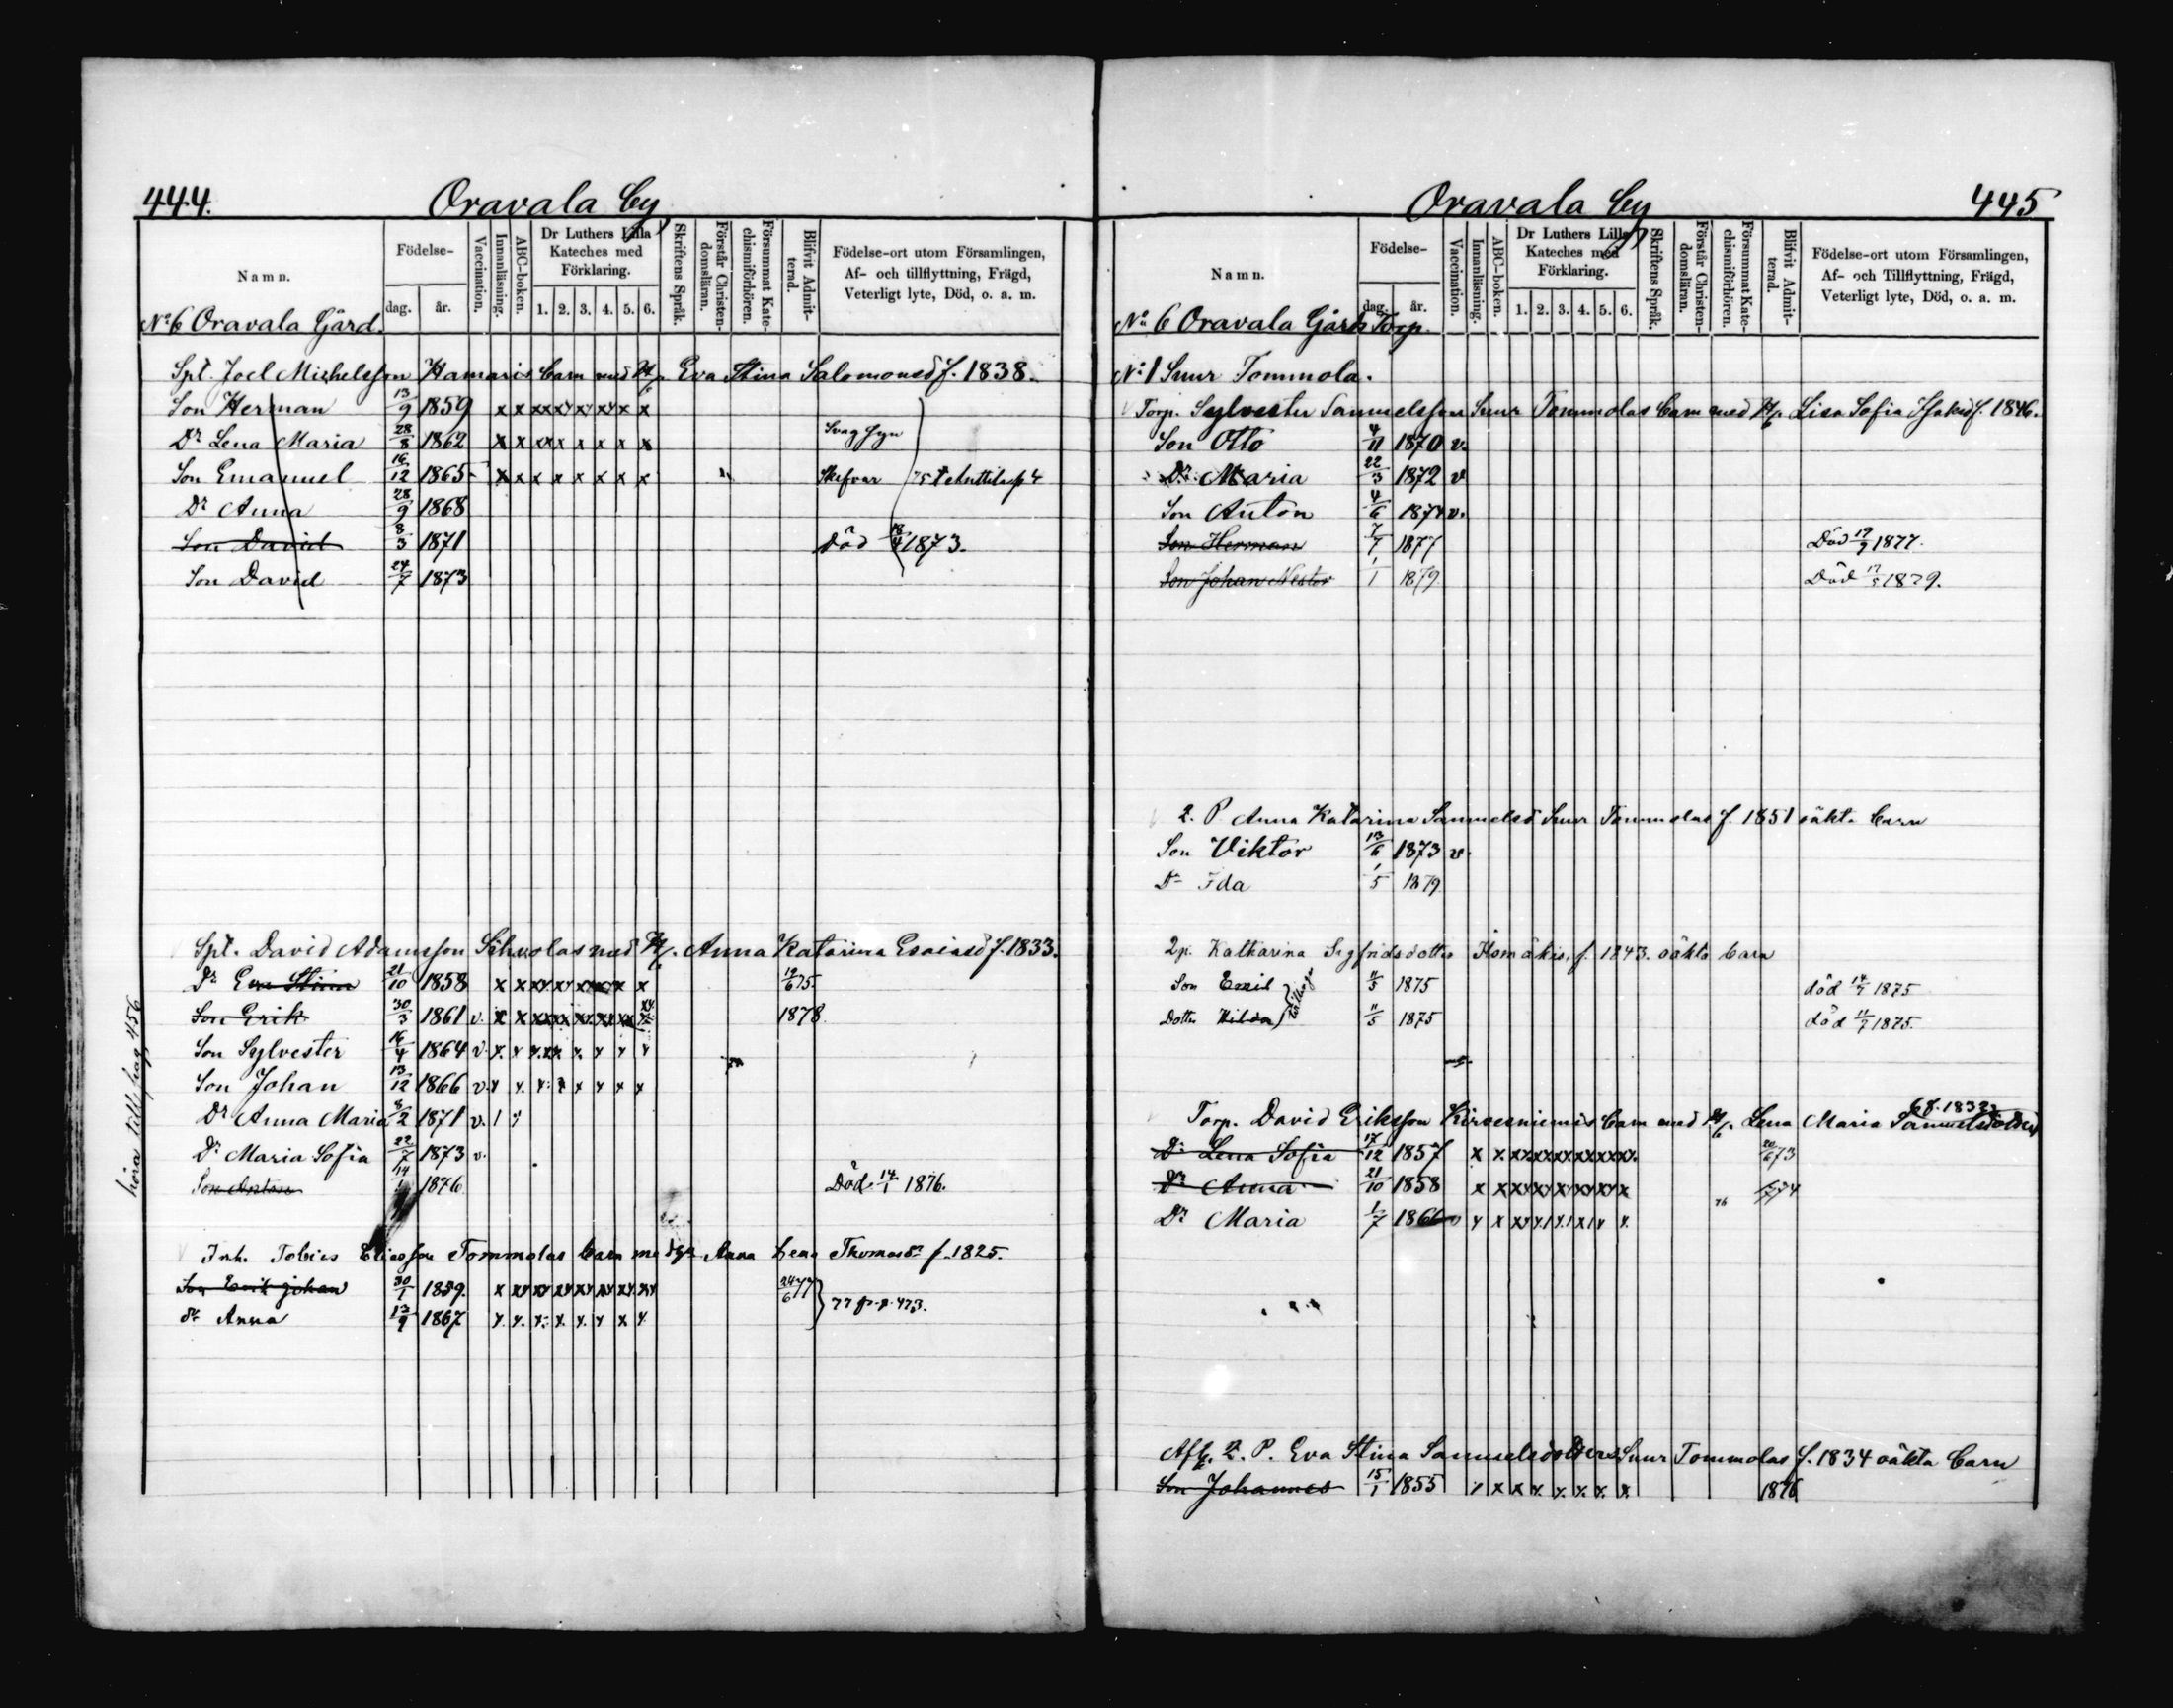 444. Oravala by
Namn. Födelse- dag. år. Vaccination. Innanläsning. ABC-boken. Dr Luthers Lilla Kateches med Förklaring. 1. 2. 3. 4. 5. 6. Skriftens Språk. Förstår Christendomsläran. Försummat Katechismiförhören. Blifvit Admitterad. Födelse-ort utom Församlingen, Af- och tillflyttning, Frägd, Veterligt lyte, Död, o. a. m.
No 6 Oravala Gård.
Spt. Joel Michelsson Hamaris barn med H/ Eva Stina Salomonsd f. 1838.
Son Herman 13/9 1859 x x xx xy xy xy x x
Dr Lena Maria 28/8 1862 x x xx x x x x x Svag syn
Son Emanuel 16/12 1865 x x x x x x x x
Dr Anna 28/9 1868
Son David 8/3 1871 Död 18/4 1873.
Son David 24/7 1873
Spt. David Adamsson Sihvolas med H/. Anna Katarina Esaiasd f. 1833.
Dr Eva Stina 21/10 1858 x x xy xy xy xy x x 12/6 75.
Son Erik 30/3 1861 v. x x xx xx xx xx xx 1878
Son Sylvester 16/4 1864 v. x. x x.xx x. x x x
Son Johan 13/12 1866 v. x x. x x x x x x
Dr Anna Maria 8/2 1871 v.
Dr Maria Sofia 22/7 1873 v.
Son Anton 14/1 1876 Död 14/1 1876.
höra till pag 456
Inh. Tobias Eliasson Tommolas barn med Anna Lena Thomasdr f. 1825.
Son Erik Johan 30/1 1859. x xy xy xy xy xy xy xy 24/6 77
dr Anna 13/9 1867 x. x. x. x. x. x x x 77 p. p. 473.
Oravala by 445
Namn. Födelse- dag. år. Vaccination. Innanläsning. ABC-boken. Dr Luthers Lilla Kateches med Förklaring. 1. 2. 3. 4. 5. 6. Skriftens Språk. Förstår Christendomsläran. Försummat Katechismiförhören. Blifvit Admitterad. Födelse-ort utom Församlingen, Af- och Tillflyttning, Frägd, Veterligt lyte, Död, o. a. m.
No 6 Oravala Gårds Torp.
No 1 Suur Tommola.
Torp. Sylvester Samuelsson Suur Tommolas barn med H/ Lisa Sofia Isaksd f. 1846.
Son Otto 4/11 1870 v.
Dr Maria 22/3 1872 v
Son Anton 4/6 1874 v.
Son Herman 7/7 1877 Död 19/9 1877.
Son Johan Nestor 1/1 1879 Död 17/5 1879.
2. P. Anna Katarina Samuelsd Suur Tommolas f. 1851 oäkta barn
Son Viktor 13/6 1873 v.
Dr Ida 1/5 1879
2p. Katharina Sigfridsdotter f. 1843. oäkta barn
Son Emil 11/5 1875 död 14/7 1875
Dotter Hilda 11/5 1875 död 11/7 1875.
Torp. David Eriksson Kirvesniemis barn med H/. Lena Maria Samuelsdotter f. 1832
Dr Lena Sofia 17/12 1857 x x. xx xx xx xx xx xx. 20/6 73
Dr Anna 21/10 1858 x x xy xy xy xy xy x 74
Dr Maria 1/7 1866 x x xx x x x x x. 76
Afl. 2. P. Eva Stina Samuelsdotters Suur Tommolas f. 1834 oäkta barn
Son Johannes 15/1 1855 x x x x. x. x. x. x. 1876